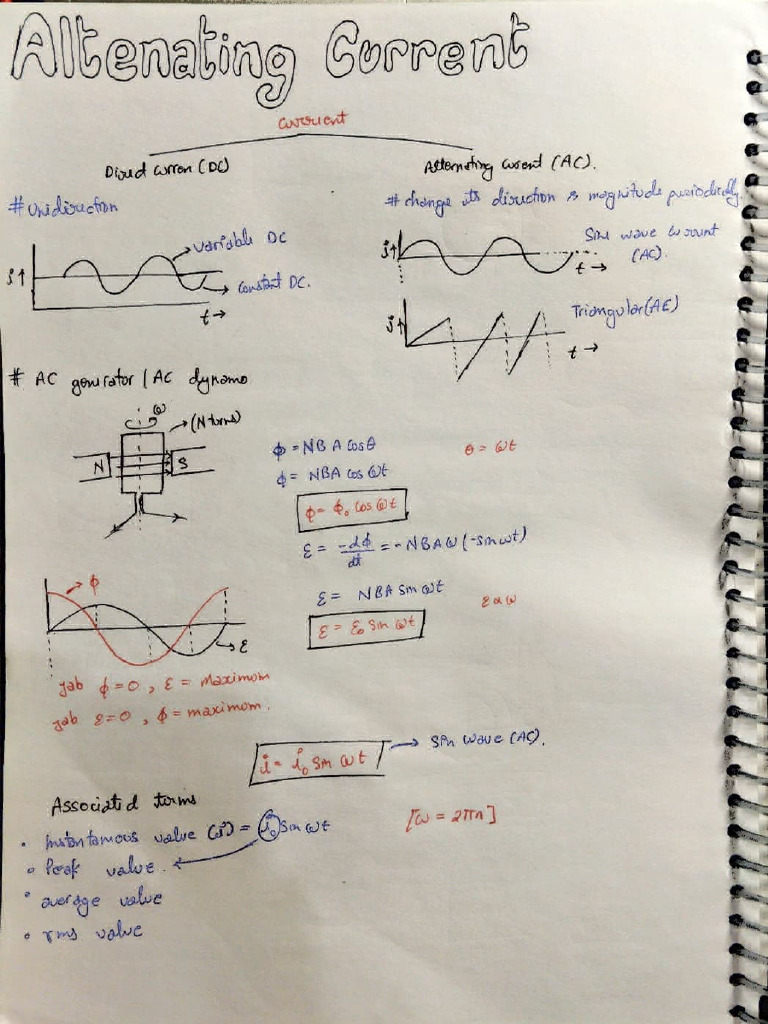 Altenating Current
current
Direct curren (DC)
Alternating curent (AC).
# Unidirection
# change its direction & magnitude periodically.
variable DC
i↑
constant DC.
t →
Sine wave current
(AC).
i↑
t →
Triangular (AC)
i↑
t →
# AC generator / AC dynamo
ω
(N turns)
N S
ϕ = NBA cosθ
θ = ωt
ϕ = NBA cos ωt
ϕ = ϕ₀ cos ωt
ε = -dϕ/dt = -NBAω (-sin ωt)
ϕ
ε
ε = NBA sin ωt
ε α ω
ε = ε₀ sin ωt
jab ϕ = 0, ε = maximum
jab ε = 0, ϕ = maximum.
i = i₀ sin ωt
Sin wave (AC).
Associated terms
• Instantamous value (i) = i₀ sin ωt
[ω = 2πn]
• Peak value.
• average value
• rms value